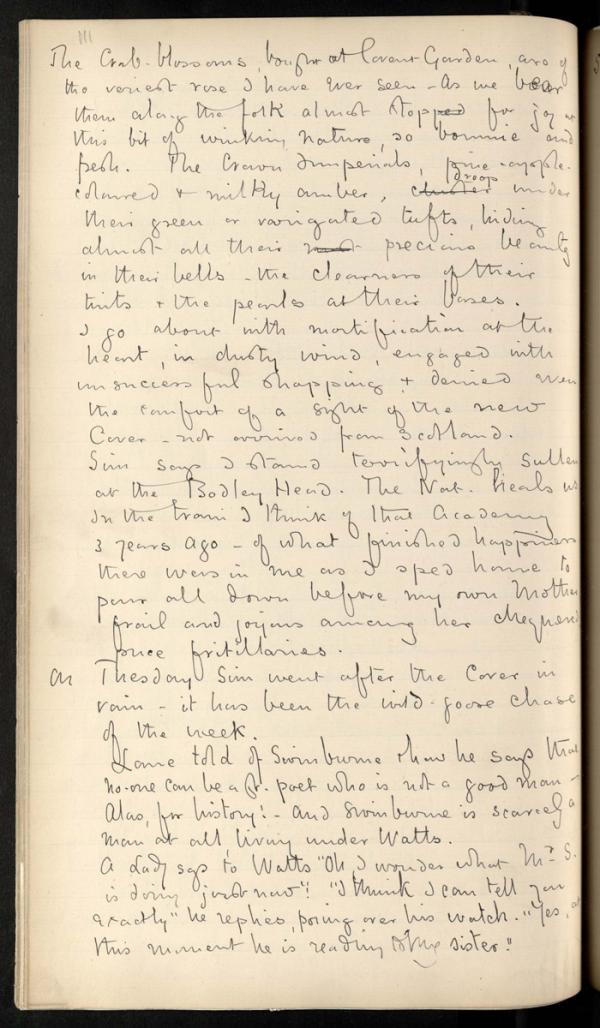 111
The Crab-blossoms, bought at Covent Garden, are of
the veriest rose I have ever seen - As we bear
them along the folk almost stopped for joy at
this bit of winking nature, so bonnie and
fresh. The Crown Imperials, pine-apple-
coloured & milky amber, cluster droop under
their green or varigated tufts, hiding
almost all their most precious beauty
in their bells - the clearness of their
tints & the pearls at their bases.
I go about with mortification at the
heart, in dusty wind, engaged with
unsuccessful shopping & denied even
the comfort of a sight of the new
Cover - not arrived from Scotland.
Sim says I stand terrifyingly sullen
at the Bodley Head. The Nat. heals us
In the train I think of that Academy
3 years ago - of what finished happiness
there was in me as I sped home to
pour all down before my own Mother
frail and joyous among her chequered
puce fritillaries.
On Tuesday Sim went after the Cover in
vain - it has been the wild-goose chase
of the week.
Lane told of Swinburne & how he says that
no-one can be a gr. poet who is not a good man -
Alas, for history! - And Swinburne is scarcely a
man at all, living under Watts.
A Lady says to Watts "Oh, I wonder what Mr. S.
is doing just now"! "I think I can tell you
exactly" he replies, poring over his watch. "Yes, at
this moment he is reading to my sister."